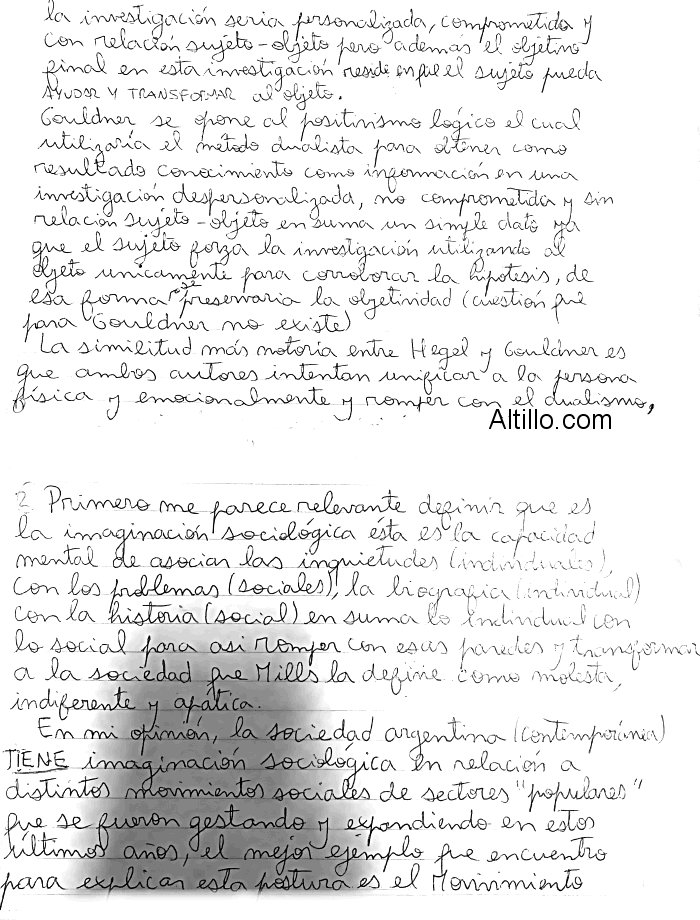 la investigación seria personalizada, comprometida y
con relación sujeto-objeto pero además el objetivo
final en esta investigación reside en que el sujeto pueda
AYUDAR Y TRANSFORMAR al objeto.
Gouldner se opone al positivismo lógico el cual
utilizaría el método dualista para obtener como
resultado conocimiento como información en una
investigación despersonalizada, no comprometida y sin
relación sujeto-objeto en suma un simple dato ya
que el sujeto forza la investigación utilizando al
objeto unicamente para corroborar la hipótesis, de
esa forma se preservaria la objetividad (cuestión que
para Gouldner no existe)
La similitud más notoria entre Hegel y Gouldner es
que ambos autores intentan unificar a la persona
física y emocionalmente y romper con el dualismo,
Altillo.com
2 Primero me parece relevante definir que es
la imaginación sociológica ésta es la capacidad
mental de asociar las inquietudes (individuales),
con los problemas (sociales), la biografia (individual)
con la historia (social) en suma lo individual con
lo social para asi romper con esas paredes y transformar
a la sociedad que Mills la define como molesta,
indiferente y apática.
En mi opinión, la sociedad argentina (contemporánea)
TIENE imaginación sociológica en relación a
distintos movimientos sociales de sectores "populares"
que se fueron gestando y expandiendo en estos
últimos años, el mejor ejemplo que encuentro
para explicar esta postura es el Movimiento